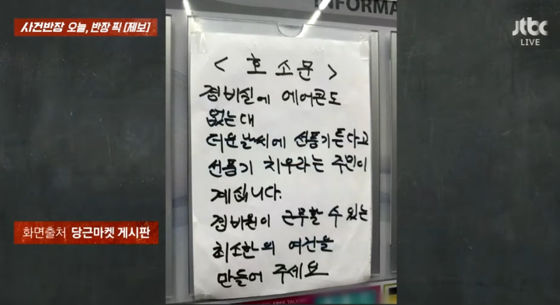 사건반장 오늘, 반장 픽 [제보]
INFORMA
jtbc
LIVE
< 호소문 >
경비실에 에어콘도
없는대
더운날씨에 선풍기튼다고
선풍기 치우라는 주민이
계십니다.
경비원이 근무할 수 있는
최소한의 여건을
만들어 주세요
화면출처 당근마켓 게시판